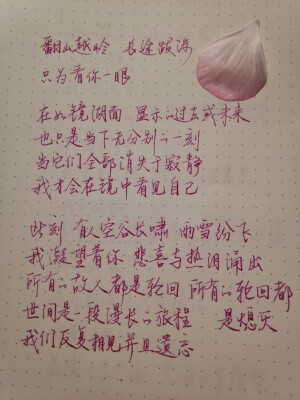 翻山越岭 长途跋涉
只为看你一眼
在如镜湖面 显示的过去或未来
也只是当下无分别的一刻
当它们全部消失于寂静
我才会在镜中看见自己
此刻 有人空谷长啸 雨雪纷飞
我凝望着你 悲喜与热泪涌出
所有的故人都是轮回 所有的轮回都
世间是一段漫长的旅程 是熄灭
我们反复相见并且遗忘